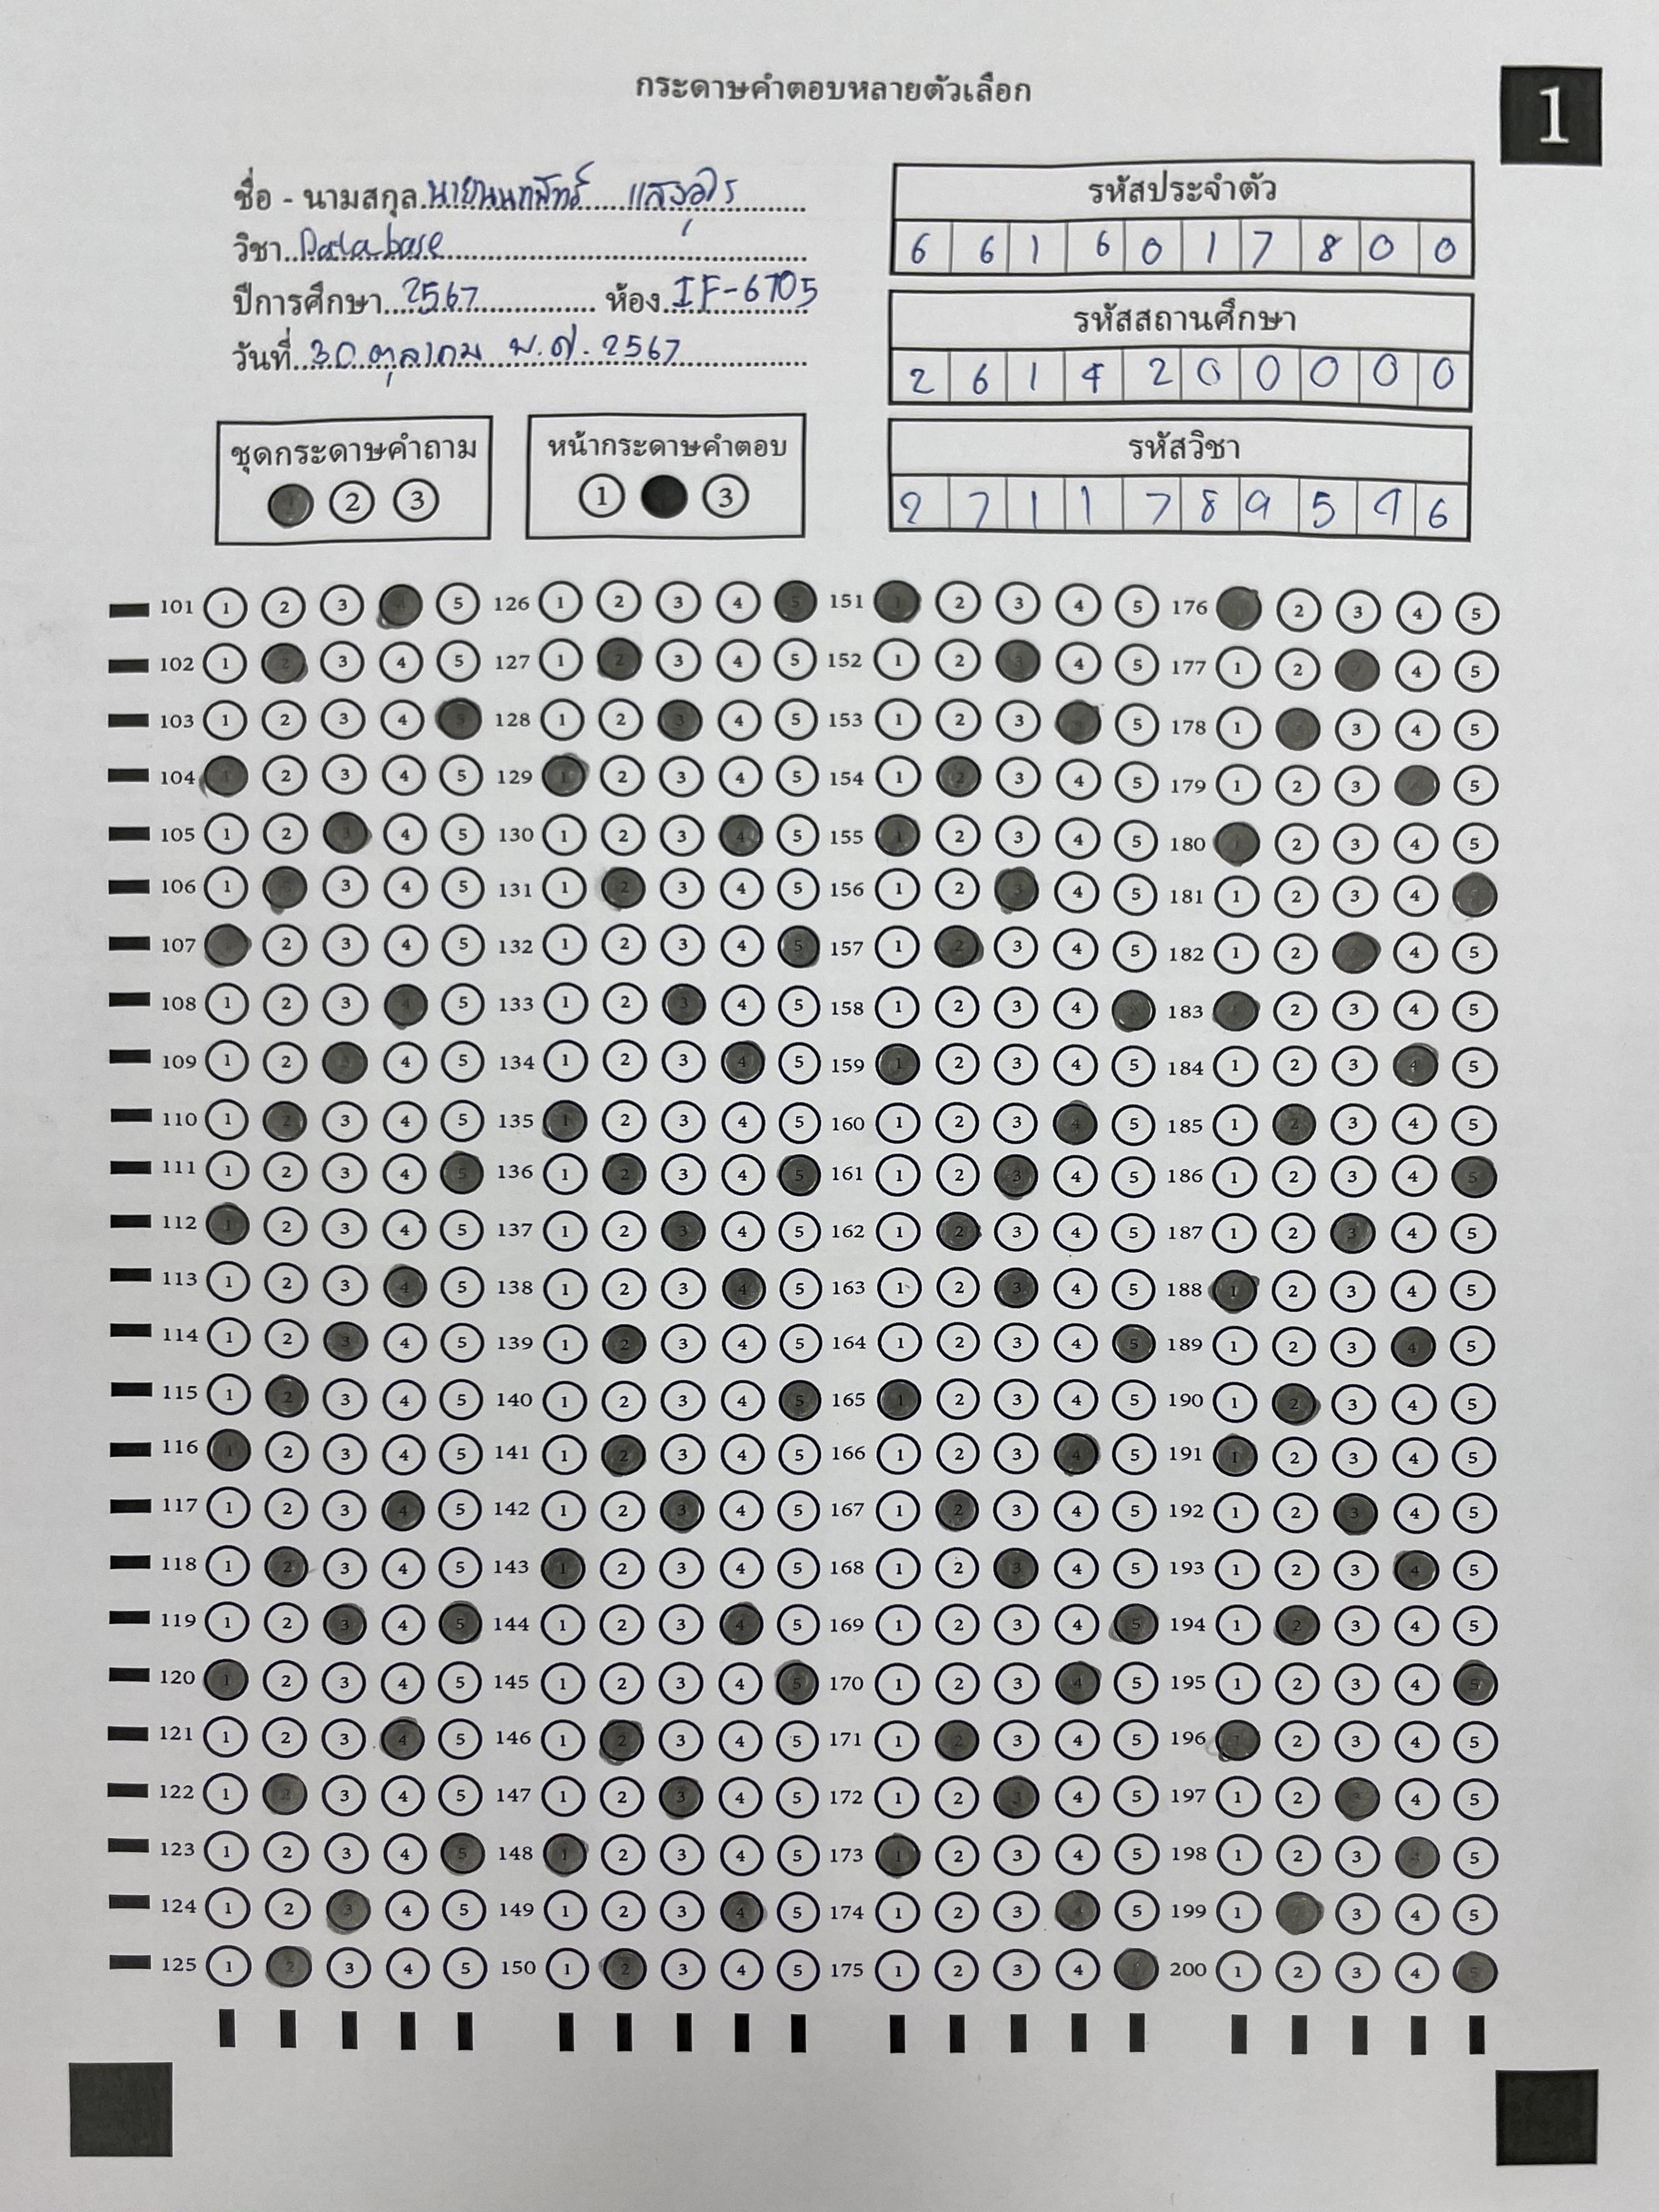 กระดาษคำตอบหลายตัวเลือก
1
ชื่อ - นามสกุล นายนนทพัทธ์ แสงอุไร
วิชา Database
ปีการศึกษา 2567 ห้อง IF-6705
วันที่ 30 ตุลาคม พ.ศ. 2567
รหัสประจำตัว
6 6 1 6 0 1 7 8 0 0
รหัสสถานศึกษา
2 6 1 4 2 0 0 0 0 0
รหัสวิชา
2 7 1 1 7 8 9 5 9 6
ชุดกระดาษคำถาม
1 2 3
หน้ากระดาษคำตอบ
1 3
101 1 2 3 4 5 126 1 2 3 4 5 151 1 2 3 4 5 176 1 2 3 4 5
102 1 2 3 4 5 127 1 2 3 4 5 152 1 2 3 4 5 177 1 2 3 4 5
103 1 2 3 4 5 128 1 2 3 4 5 153 1 2 3 4 5 178 1 2 3 4 5
104 1 2 3 4 5 129 1 2 3 4 5 154 1 2 3 4 5 179 1 2 3 4 5
105 1 2 3 4 5 130 1 2 3 4 5 155 1 2 3 4 5 180 1 2 3 4 5
106 1 2 3 4 5 131 1 2 3 4 5 156 1 2 3 4 5 181 1 2 3 4 5
107 1 2 3 4 5 132 1 2 3 4 5 157 1 2 3 4 5 182 1 2 3 4 5
108 1 2 3 4 5 133 1 2 3 4 5 158 1 2 3 4 5 183 1 2 3 4 5
109 1 2 3 4 5 134 1 2 3 4 5 159 1 2 3 4 5 184 1 2 3 4 5
110 1 2 3 4 5 135 1 2 3 4 5 160 1 2 3 4 5 185 1 2 3 4 5
111 1 2 3 4 5 136 1 2 3 4 5 161 1 2 3 4 5 186 1 2 3 4 5
112 1 2 3 4 5 137 1 2 3 4 5 162 1 2 3 4 5 187 1 2 3 4 5
113 1 2 3 4 5 138 1 2 3 4 5 163 1 2 3 4 5 188 1 2 3 4 5
114 1 2 3 4 5 139 1 2 3 4 5 164 1 2 3 4 5 189 1 2 3 4 5
115 1 2 3 4 5 140 1 2 3 4 5 165 1 2 3 4 5 190 1 2 3 4 5
116 1 2 3 4 5 141 1 2 3 4 5 166 1 2 3 4 5 191 1 2 3 4 5
117 1 2 3 4 5 142 1 2 3 4 5 167 1 2 3 4 5 192 1 2 3 4 5
118 1 2 3 4 5 143 1 2 3 4 5 168 1 2 3 4 5 193 1 2 3 4 5
119 1 2 3 4 5 144 1 2 3 4 5 169 1 2 3 4 5 194 1 2 3 4 5
120 1 2 3 4 5 145 1 2 3 4 5 170 1 2 3 4 5 195 1 2 3 4 5
121 1 2 3 4 5 146 1 2 3 4 5 171 1 2 3 4 5 196 1 2 3 4 5
122 1 2 3 4 5 147 1 2 3 4 5 172 1 2 3 4 5 197 1 2 3 4 5
123 1 2 3 4 5 148 1 2 3 4 5 173 1 2 3 4 5 198 1 2 3 4 5
124 1 2 3 4 5 149 1 2 3 4 5 174 1 2 3 4 5 199 1 2 3 4 5
125 1 2 3 4 5 150 1 2 3 4 5 175 1 2 3 4 5 200 1 2 3 4 5